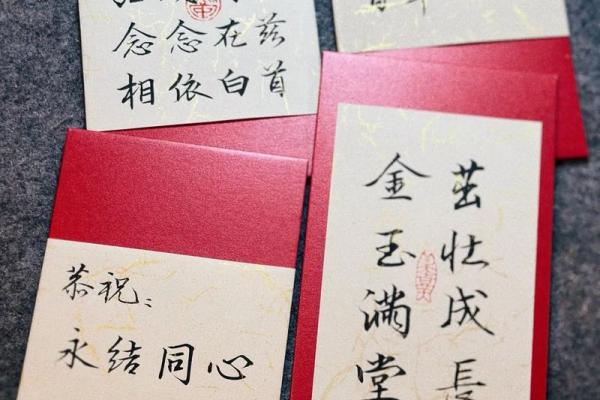 念念在兹
相依白首
恭祝：
永结同心
茁壮成長
金玉满堂